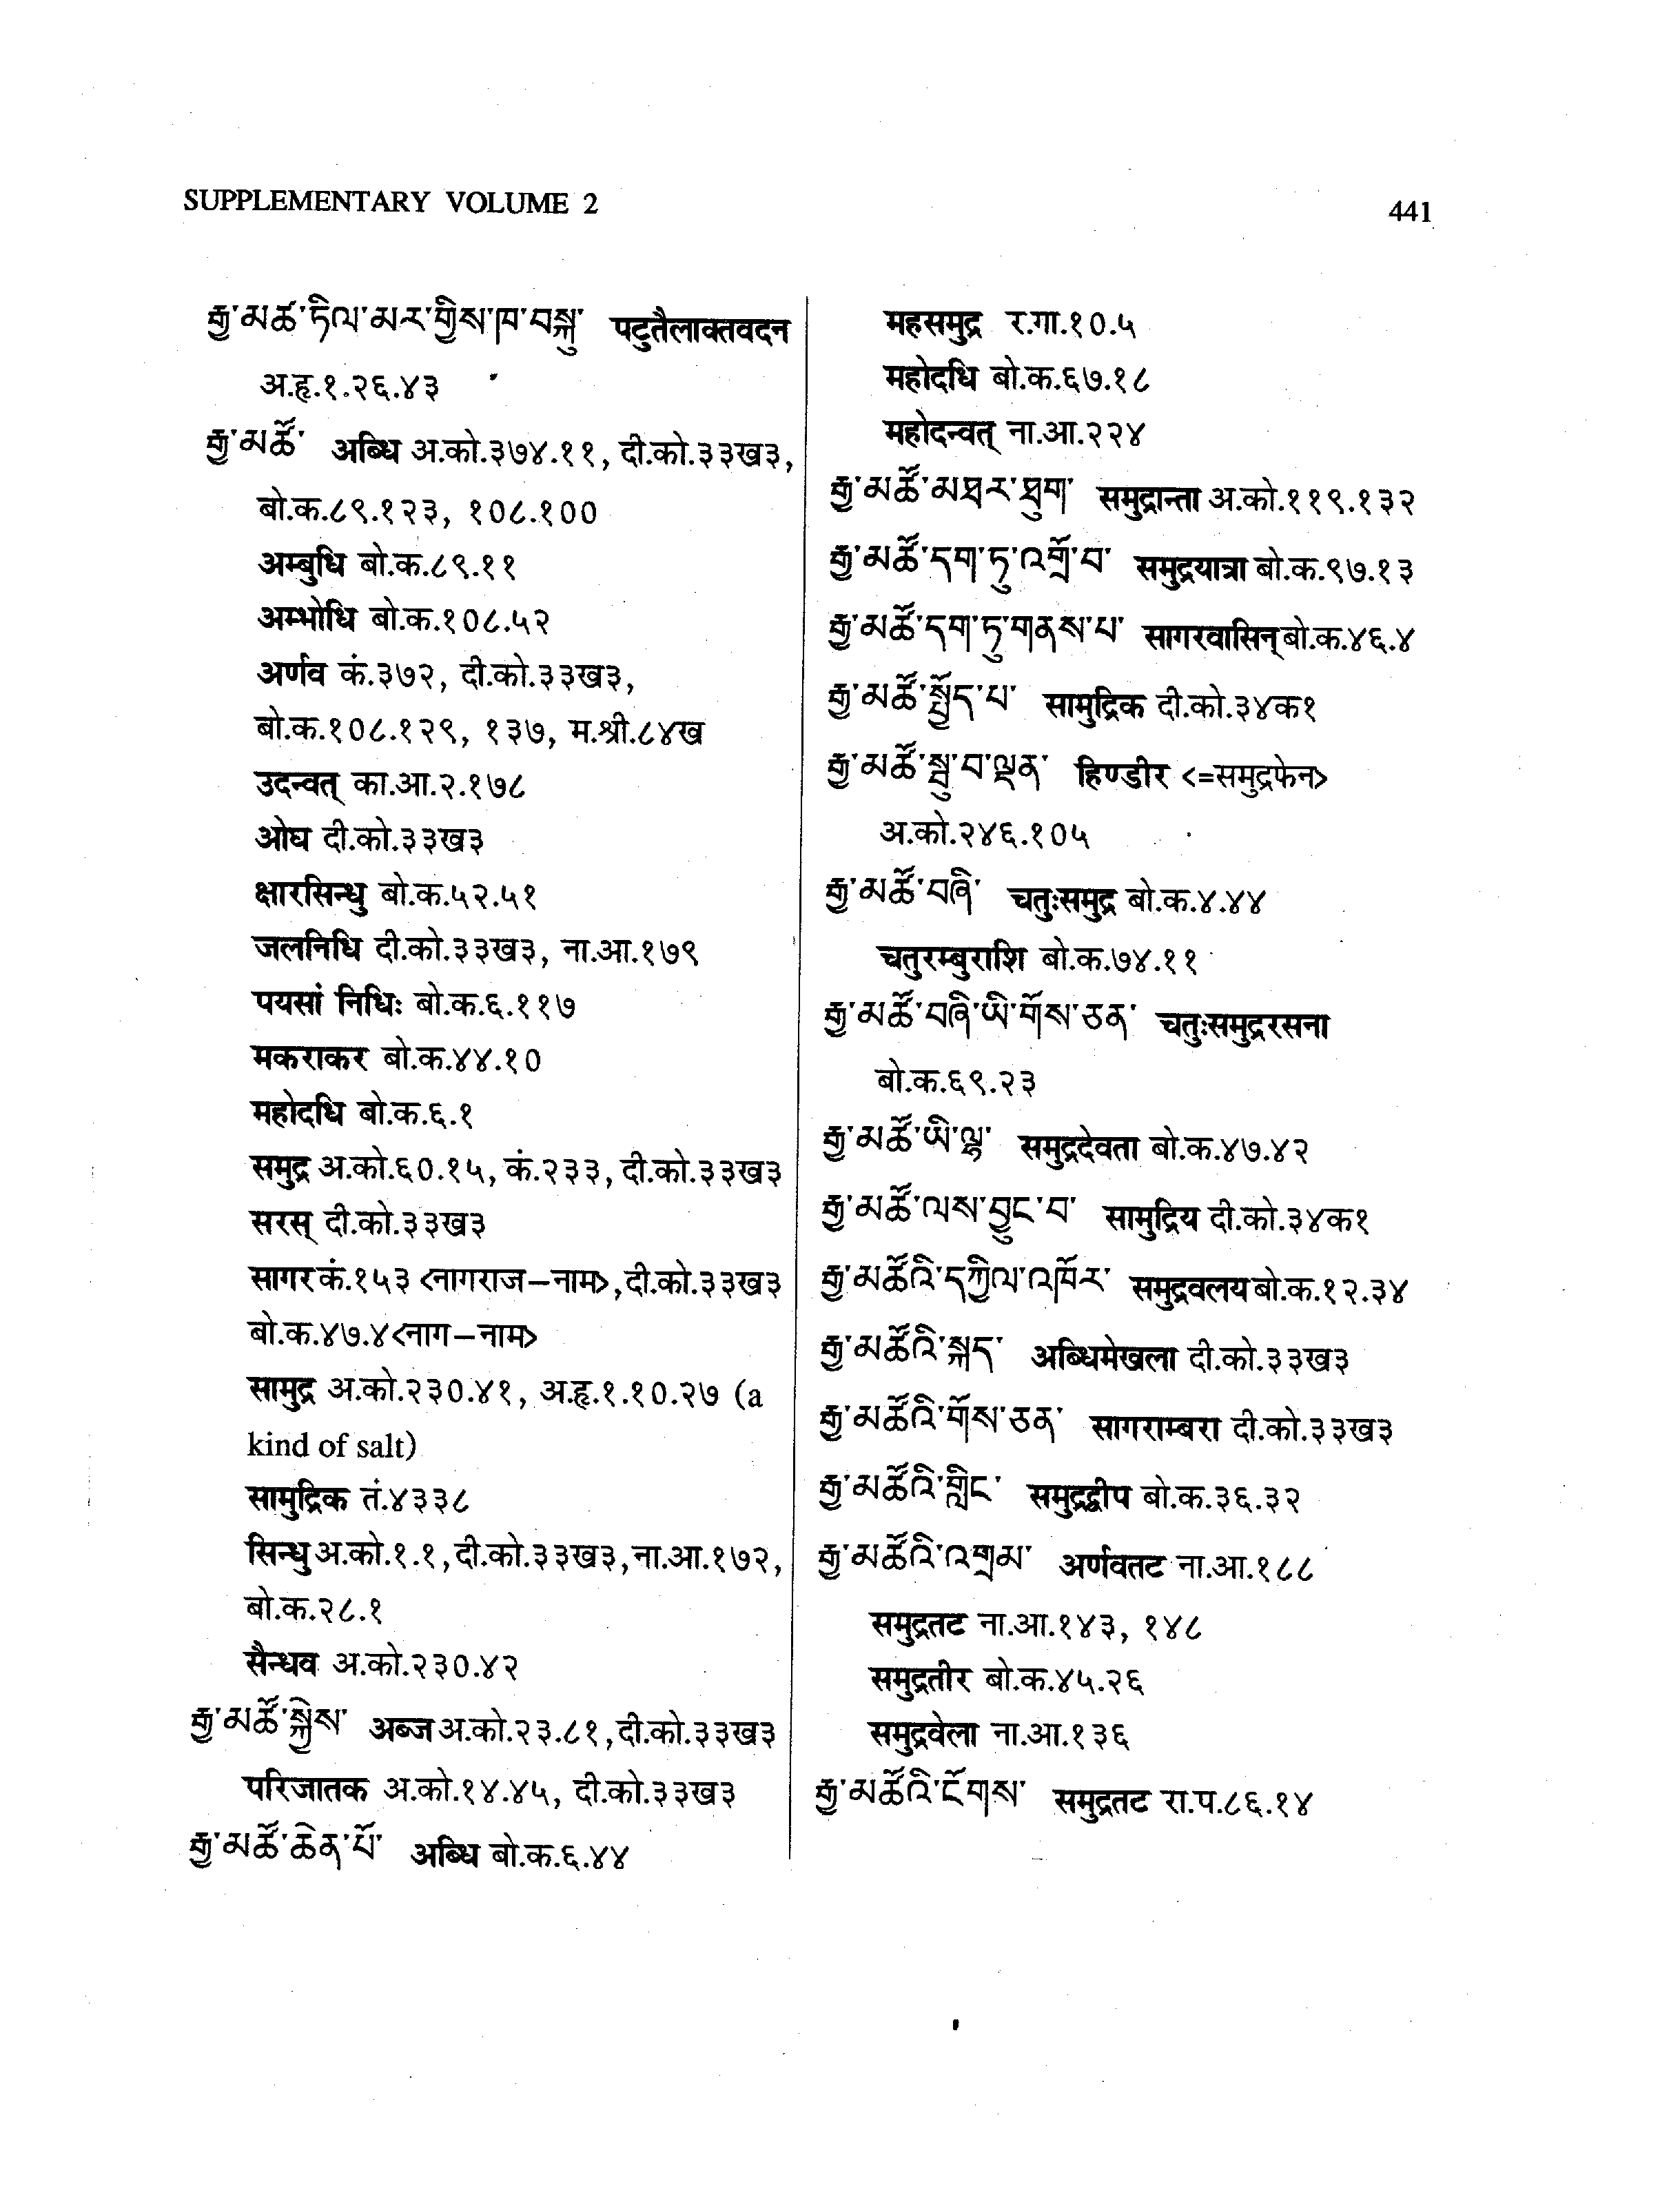 SUPPLEMENTARY VOLUME 2
441
རྒྱ་མཚ་ཏིལ་མར་གྱིས་ཁ་བསྐུ་ पटुतैलाक्तवदन
अ.हृ.१.२६.४३
རྒྱ་མཚོ་ अब्धि अ.को.३७४.११, दी.को.३३ख३,
बो.क.८९.१२३, १०८.१००
अम्बुधि बो.क.८९.११
अम्भोधि बो.क.१०८.५२
अर्णव कं.३७२, दी.को.३३ख३,
बो.क.१०८.१२९, १३७, म.श्री.८४ख
उदन्वत् का.आ.२.१७८
ओघ दी.को.३३ख३
क्षारसिन्धु बो.क.५२.५१
जलनिधि दी.को.३३ख३, ना.आ.१७९
पयसां निधिः बो.क.६.११७
मकराकर बो.क.४४.१०
महोदधि बो.क.६.१
समुद्र अ.को.६०.१५, कं.२३३, दी.को.३३ख३
सरस् दी.को.३३ख३
सागर कं.१५३ <नागराज–नाम>, दी.को.३३ख३
बो.क.४७.४<नाग–नाम>
सामुद्र अ.को.२३०.४१, अ.हृ.१.१०.२७ (a
kind of salt)
सामुद्रिक तं.४३३८
सिन्धु अ.को.१.१, दी.को.३३ख३, ना.आ.१७२,
बो.क.२८.१
सैन्धव अ.को.२३०.४२
རྒྱ་མཚོ་སྐྱེས་ अब्ज अ.को.२३.८१, दी.को.३३ख३
परिजातक अ.को.१४.४५, दी.को.३३ख३
རྒྱ་མཚོ་ཆེན་པོ་ अब्धि बो.क.६.४४
महसमुद्र र.गा.१०.५
महोदधि बो.क.६७.१८
महोदन्वत् ना.आ.२२४
རྒྱ་མཚོ་མཐར་ཐུག་ समुद्रान्ता अ.को.११९.१३२
རྒྱ་མཚོ་དག་ཏུ་འགྲོ་བ་ समुद्रयात्रा बो.क.९७.१३
རྒྱ་མཚོ་དག་ཏུ་གནས་པ་ सागरवासिन् बो.क.४६.४
རྒྱ་མཚོ་སྤྱོད་པ་ सामुद्रिक दी.को.३४क१
རྒྱ་མཚོ་སྦུ་བ་ལྡན་ हिण्डीर <=समुद्रफेन>
अ.को.२४६.१०५
རྒྱ་མཚོ་བཞི་ चतुःसमुद्र बो.क.४.४४
चतुरम्बुराशि बो.क.७४.११
རྒྱ་མཚོ་བཞི་ཡི་གོས་ཅན་ चतुःसमुद्ररसना
बो.क.६९.२३
རྒྱ་མཚོ་ཡི་ལྷ་ समुद्रदेवता बो.क.४७.४२
རྒྱ་མཚོ་ལས་བྱུང་བ་ सामुद्रिय दी.को.३४क१
རྒྱ་མཚོའི་དཀྱིལ་འཁོར་ समुद्रवलय बो.क.१२.३४
རྒྱ་མཚོའི་སྐད་ अब्धिमेखला दी.को.३३ख३
རྒྱ་མཚོའི་གོས་ཅན་ सागराम्बरा दी.को.३३ख३
རྒྱ་མཚོའི་གླིང་ समुद्रद्वीप बो.क.३६.३२
རྒྱ་མཚོའི་འགྲམ་ अर्णवतट ना.आ.१८८
समुद्रतट ना.आ.१४३, १४८
समुद्रतीर बो.क.४५.२६
समुद्रवेला ना.आ.१३६
རྒྱ་མཚོའི་ངོགས་ समुद्रतट रा.प.८६.१४